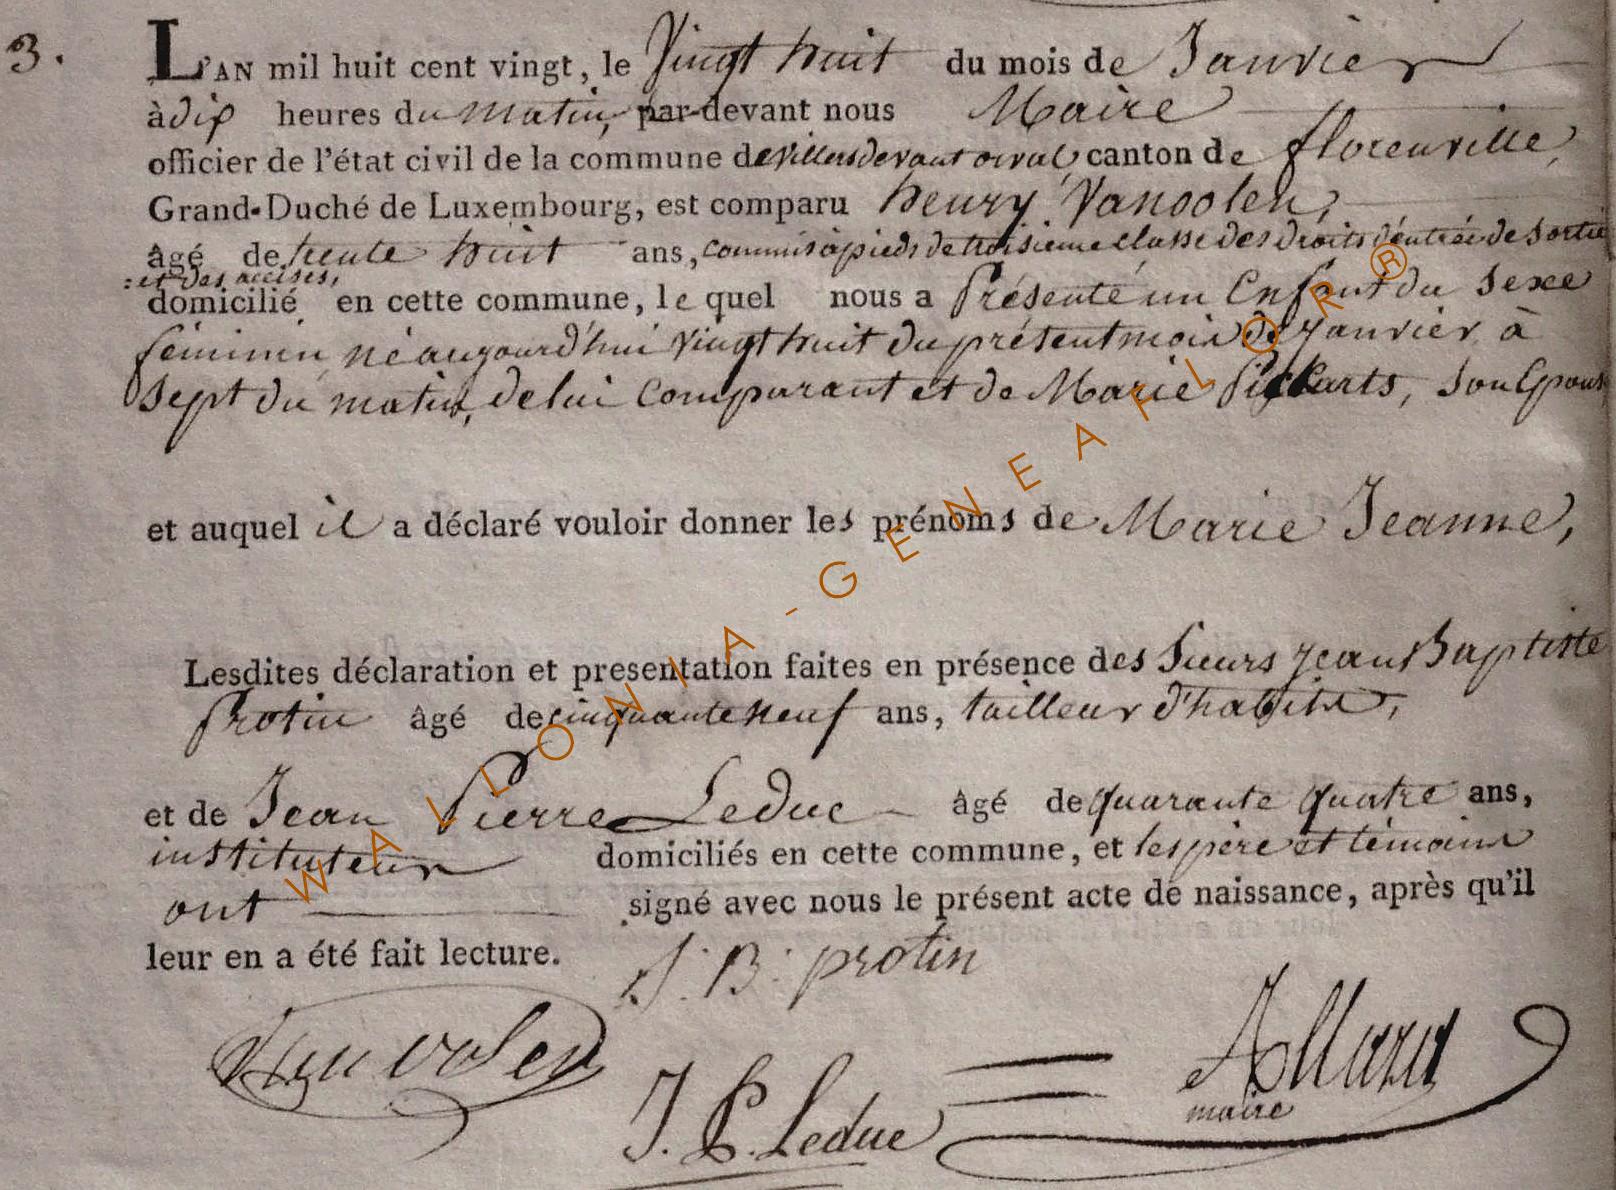 3.
L'AN mil huit cent vingt, le Vingt huit du mois de Janvier
à dix heures du matin, par-devant nous Maire
officier de l'état civil de la commune de villers devant orval, canton de florenville,
Grand-Duché de Luxembourg, est comparu henry Vanoolen,
âgé de trente huit ans, commis à pieds de troisieme classe des droits d'entrée de Sortie
: et des accises,
domicilié en cette commune, le quel nous a Présenté un Enfant du Sexe
féminin, né aujourd'hui Vingt huit du présent mois de janvier, à
Sept du matin, de lui Comparant et de Marie, Son Epouse
et auquel il a déclaré vouloir donner les prénoms de Marie Jeanne,
Lesdites déclaration et presentation faites en présence des Sieurs jean Baptiste
Protin âgé de cinquante neuf ans, tailleur d'habits,
et de Jean Pierre Leduc âgé de quarante quatre ans,
instituteur domiciliés en cette commune, et les père et témoins
ont signé avec nous le présent acte de naissance, après qu'il
leur en a été fait lecture.
J. B. protin
J. P. Leduc
maire
WALLONIA-GENEAFLOR®